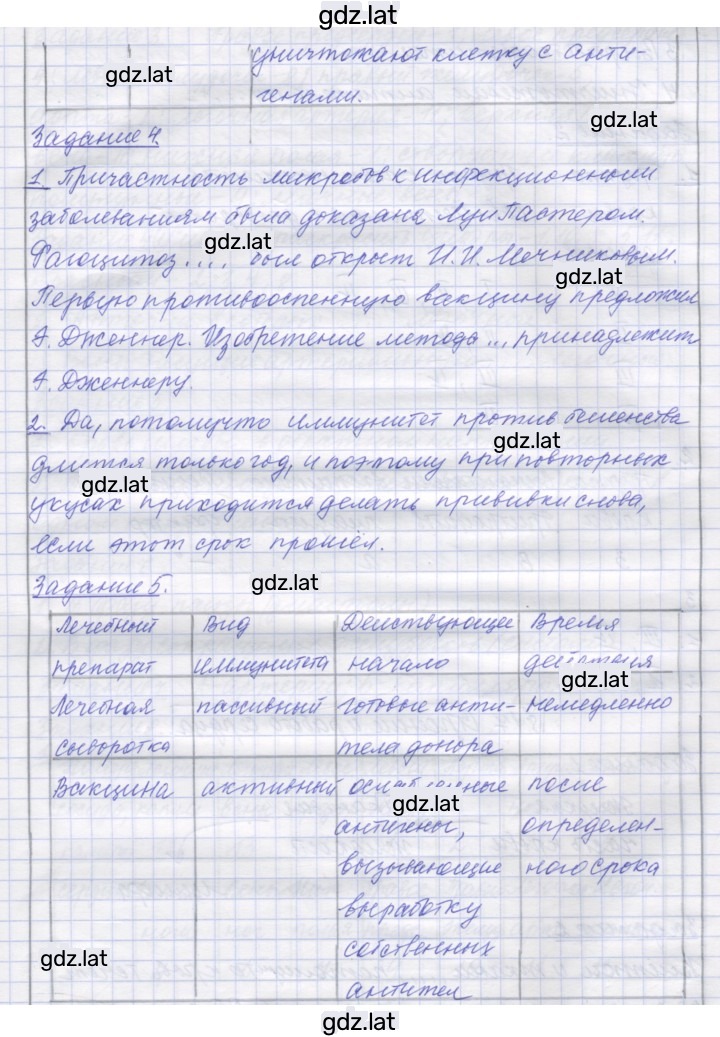 gdz.lat
уничтожают клетку с анти-
gdz.lat
генами.
gdz.lat
Задание 4.
1. Причастность микробов к инфекционными
заболеваниям была доказана Луи Пастером.
gdz.lat
Фагоцитоз .... был открыт И.И. Мечниковым.
gdz.lat
Первую противооспенную вакцину предложил
А. Дженнер. Изобретение метода ... принадлежит
А. Дженнеру.
2. Да, потомучто иммунитет против бешенства
gdz.lat
длится только год, и поэтому при повторных
gdz.lat
укусах приходится делать прививки снова,
если этот срок прошёл.
Задание 5.
gdz.lat
Лечебный Вид Действующее Время
препарат иммунитета начало действия
gdz.lat
Лечебная пассивный готовые анти- немедленно
сыворотка тела донора
Вакцина активный ослабленные после
gdz.lat
антигены, определен-
вызывающие ного срока
выработку
собственных
gdz.lat
антител
gdz.lat